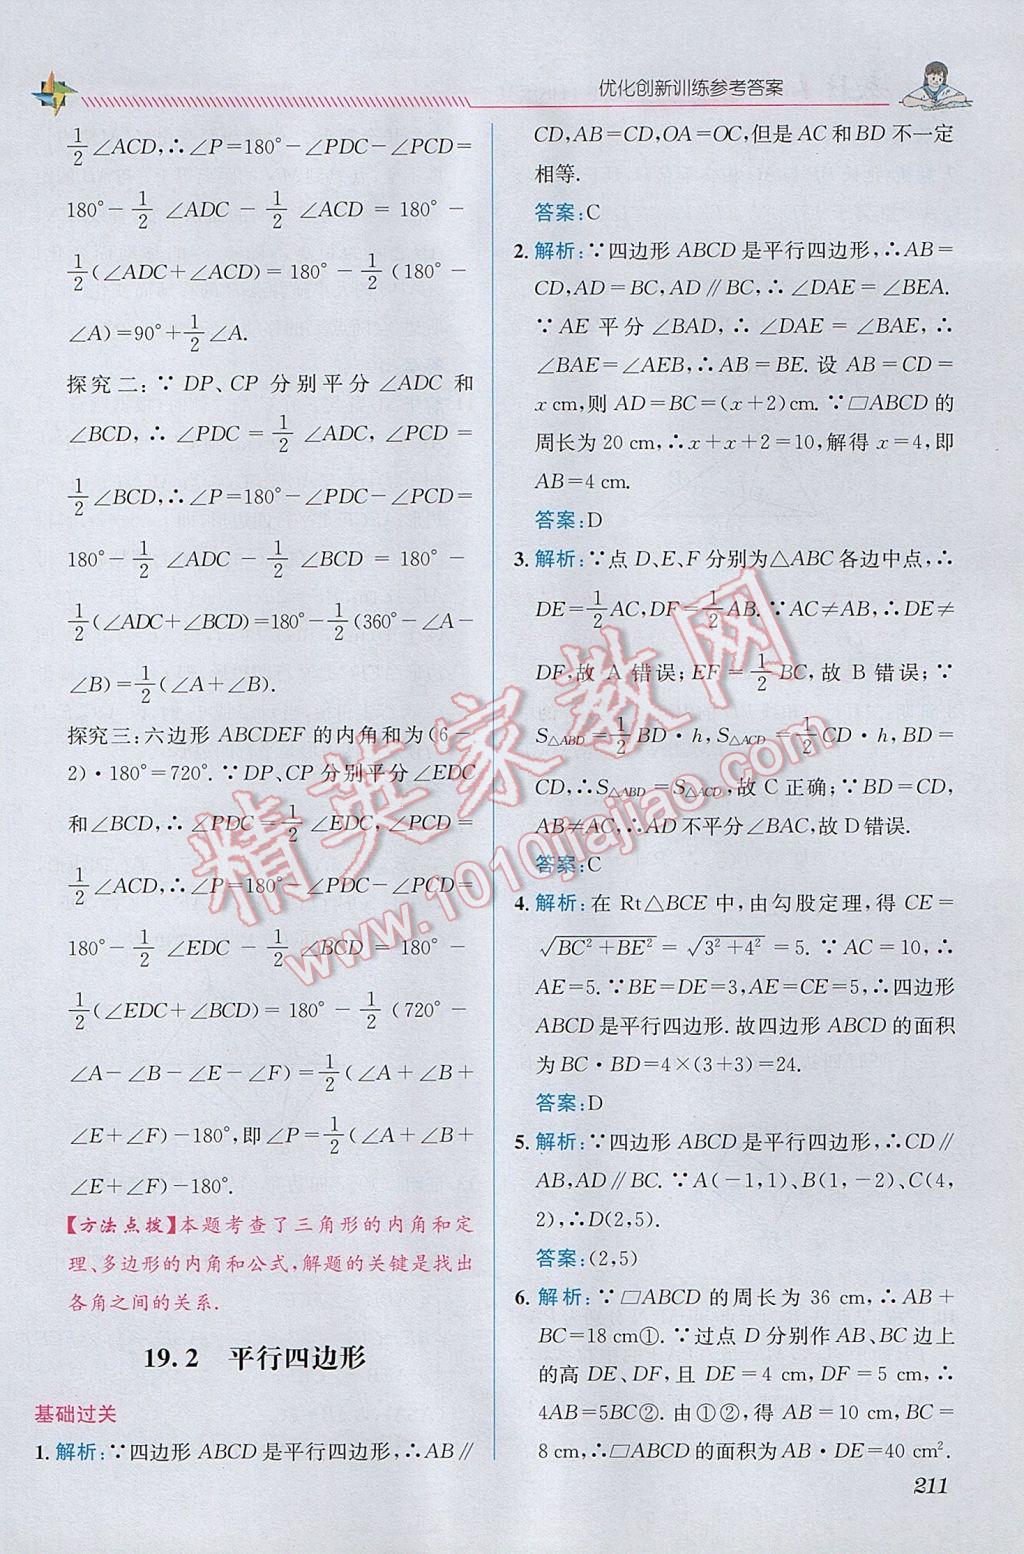 优化创新训练参考答案
1/2∠ACD,∴∠P=180°-∠PDC-∠PCD=
180°-1/2 ∠ADC - 1/2 ∠ACD = 180° -
1/2(∠ADC+∠ACD) = 180° - 1/2 (180° -
∠A)=90°+1/2∠A.
探究二:∵ DP、CP 分别平分∠ADC 和
∠BCD,∴∠PDC=1/2 ∠ADC,∠PCD=
1/2∠BCD,∴∠P=180°-∠PDC-∠PCD=
180°-1/2 ∠ADC - 1/2 ∠BCD = 180° -
1/2(∠ADC+∠BCD)=180°-1/2(360°-∠A-
∠B)=1/2(∠A+∠B).
探究三:六边形 ABCDEF 的内角和为(6-
2)·180°=720°.∵DP、CP 分别平分∠EDC
和∠BCD,∴∠PDC=1/2 ∠EDC,∠PCD=
1/2∠ACD,∴∠P=180°-∠PDC-∠PCD=
180°-1/2 ∠EDC - 1/2 ∠BCD = 180° -
1/2(∠EDC+∠BCD) = 180° - 1/2 (720° -
∠A-∠B-∠E-∠F)=1/2(∠A+∠B+
∠E+∠F)-180°,即∠P=1/2(∠A+∠B+
∠E+∠F)-180°.
【方法点拨】本题考查了三角形的内角和定
理、多边形的内角和公式,解题的关键是找出
各角之间的关系.
19.2 平行四边形
基础过关
1. 解析:∵四边形 ABCD 是平行四边形,∴AB∥
CD,AB=CD,OA=OC,但是 AC 和 BD 不一定
相等.
答案:C
2. 解析:∵四边形 ABCD 是平行四边形,∴AB=
CD,AD=BC,AD∥BC,∴∠DAE=∠BEA.
∵AE 平分∠BAD,∴∠DAE=∠BAE,∴
∠BAE=∠AEB,∴AB=BE. 设 AB=CD=
x cm,则 AD=BC=(x+2)cm.∵▱ABCD 的
周长为 20 cm,∴x+x+2=10,解得 x=4,即
AB=4 cm.
答案:D
3. 解析:∵点 D、E、F 分别为△ABC 各边中点,∴
DE=1/2AC,DF=1/2AB.∵AC≠AB,∴DE≠
DF,故 A 错误;EF=1/2BC,故 B 错误;∵
S△ABD=1/2BD·h,S△ACD=1/2CD·h,BD=
CD,∴S△ABD=S△ACD,故 C 正确;∵BD=CD,
AB≠AC,∴AD 不平分∠BAC,故 D 错误.
答案:C
4. 解析:在 Rt△BCE 中,由勾股定理,得 CE=
√(BC²+BE²)=√(3²+4²)=5.∵AC=10,∴
AE=5.∵BE=DE=3,AE=CE=5,∴四边形
ABCD 是平行四边形.故四边形 ABCD 的面积
为 BC·BD=4×(3+3)=24.
答案:D
5. 解析:∵四边形 ABCD 是平行四边形,∴CD∥
AB,AD∥BC.∵A(-1,1)、B(1,-2)、C(4,
2),∴D(2,5).
答案:(2,5)
6. 解析:∵▱ABCD 的周长为 36 cm,∴AB+
BC=18 cm①.∵过点 D 分别作 AB、BC 边上
的高 DE、DF,且 DE=4 cm,DF=5 cm,∴
4AB=5BC②.由①②,得 AB=10 cm,BC=
8 cm,∴▱ABCD 的面积为 AB·DE=40 cm².
211
精英家教网
www.1010jiajiao.com